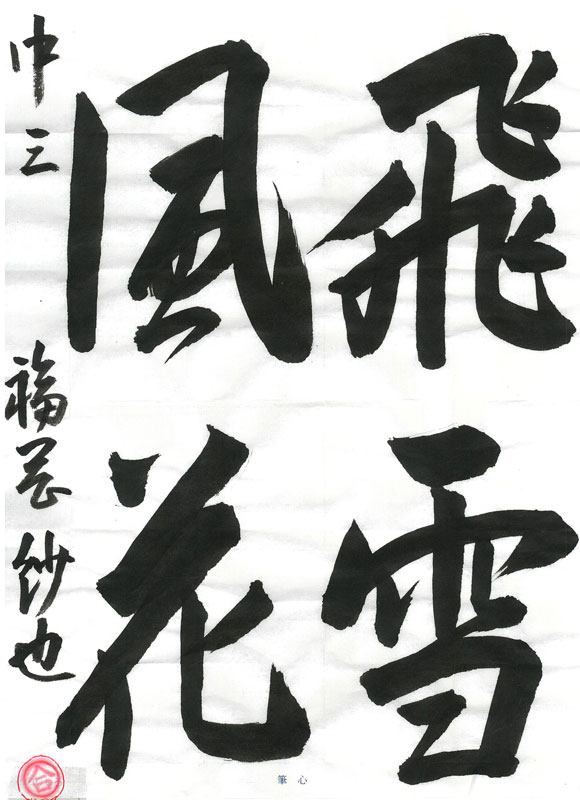 飛雪
風花
中三 福 紗也
合
筆心